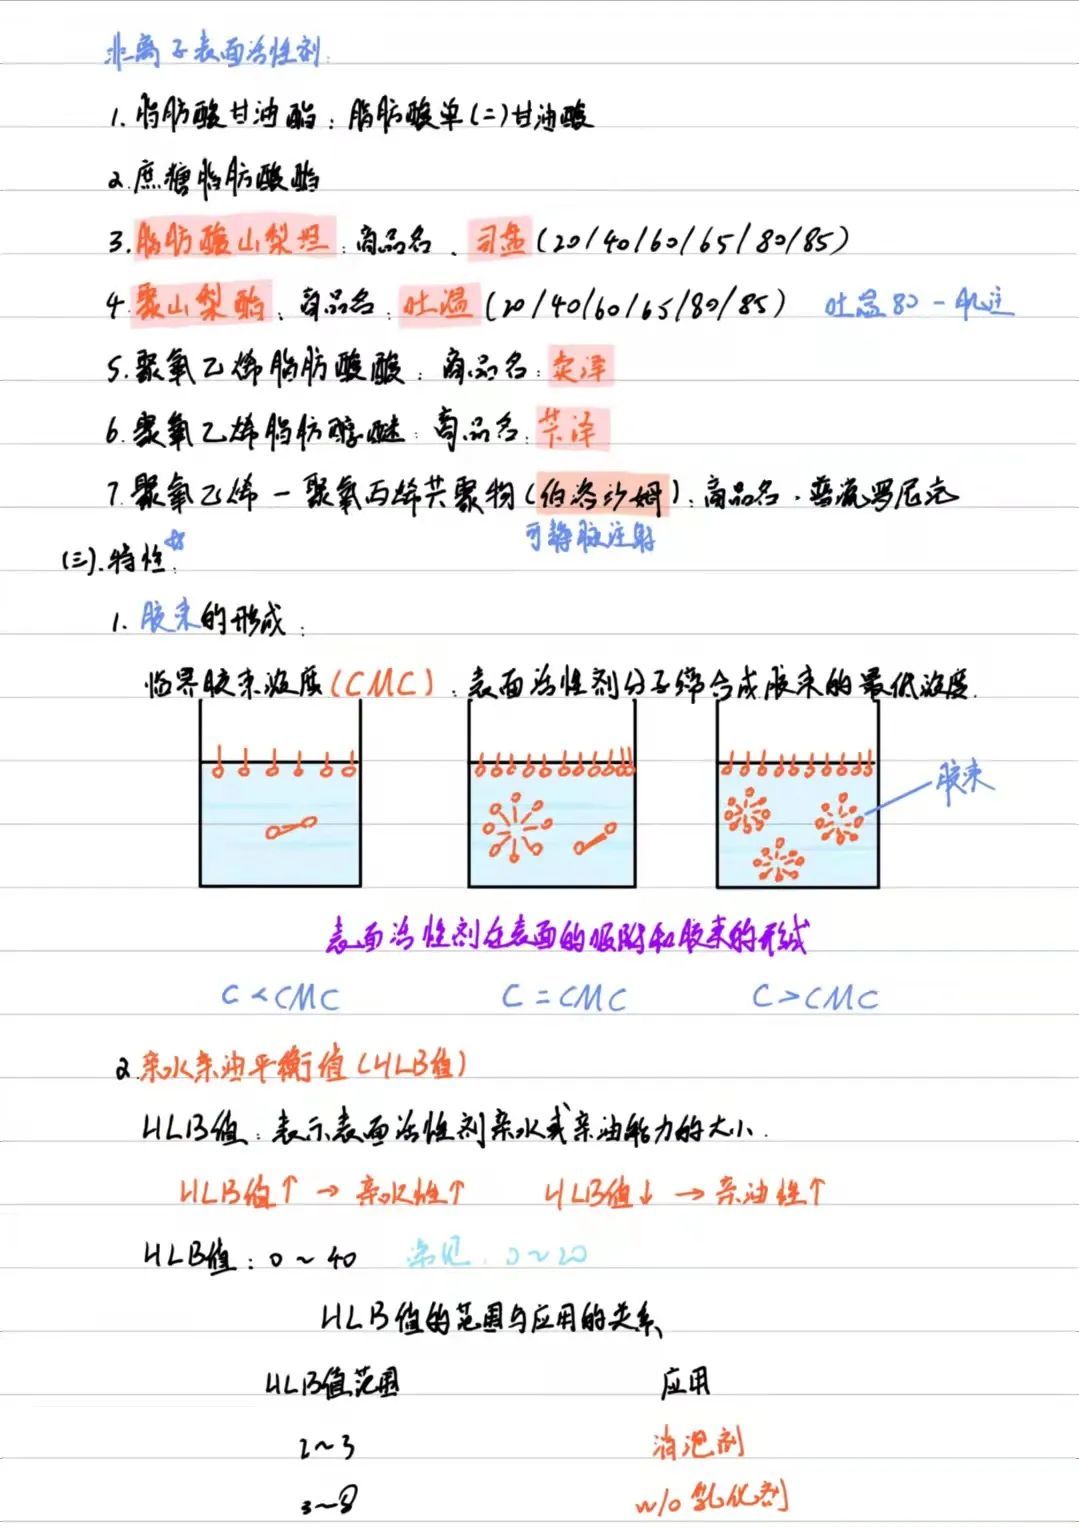 非离子表面活性剂:
1. 脂肪酸甘油酯：脂肪酸单(二)甘油酸
2. 蔗糖脂肪酸酯
3. 脂肪酸山梨坦：商品名、司盘(20/40/60/65/80/85)
4. 聚山梨酯、商品名：吐温(20/40/60/65/80/85) 吐温80-肌注
5. 聚氧乙烯脂肪酸酸：商品名：卖泽
6. 聚氧乙烯脂肪醇醚：商品名：苄泽
7. 聚氧乙烯-聚氧丙烯共聚物(伯洛沙姆)：商品名：普流罗尼克
可静脉注射
(三). 特性:
1. 胶束的形成：
临界胶束浓度(CMC)：表面活性剂分子缔合成胶束的最低浓度.
胶束
表面活性剂在表面的吸附和胶束的形成
C<CMC C=CMC C>CMC
2. 亲水亲油平衡值(HLB值)
HLB值：表示表面活性剂亲水或亲油能力的大小.
HLB值↑→亲水性↑ HLB值↓→亲油性↑
HLB值：0~40 常见：0~20
HLB值的范围与应用的关系
HLB值范围 应用
2~3 消泡剂
3~8 w/o乳化剂